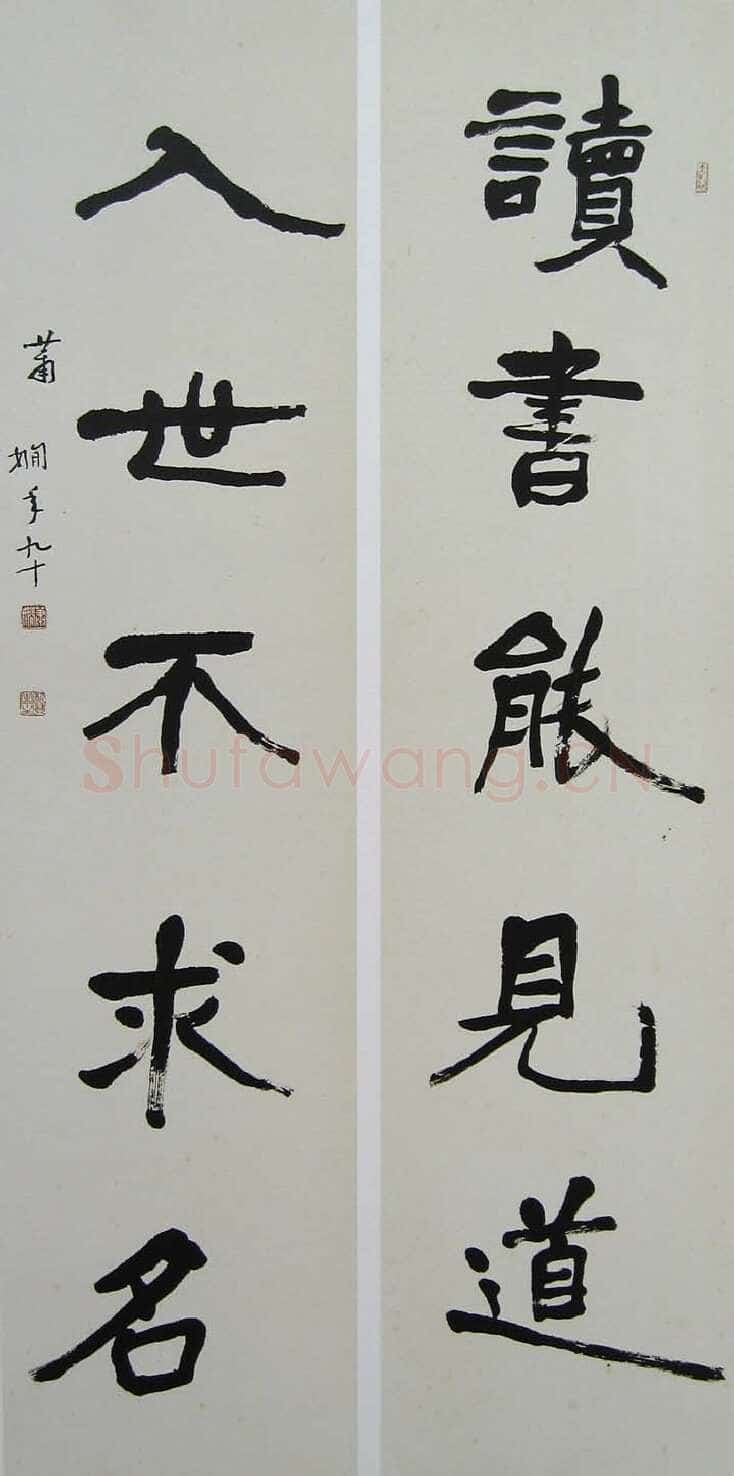 讀書能見道
入世不求名
蕭嫻年九十
Shufawang.CN